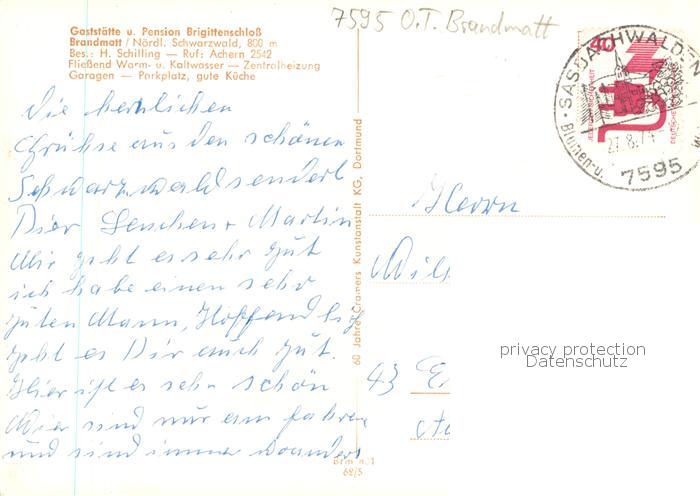 7595 O.T. Brandmatt
Gaststätte u. Pension Brigittenschloß
Brandmatt / Nördl. Schwarzwald, 800 m
Bes.: H. Schilling — Ruf: Achern 2542
Fließend Warm- u. Kaltwasser — Zentralheizung
Garagen — Parkplatz, gute Küche
Die herzlichen
Grühse aus den schönen
Schwarzwald sendert
Dier Lenchen + Martin
Mir geht es sehr gut
ich habe einen sehr
guten Mann, Hoffendlich
geht es Dir auch gut.
Hier ist es sehr schön
Wier sind nur am fahren
und sind immer woanders
60 Jahre Cramers Kunstanstalt KG, Dortmund
62/5
40
SASBACHWALDEN
Blumen- u.
27.8.
7595
Herrn
43
privacy protection
Datenschutz